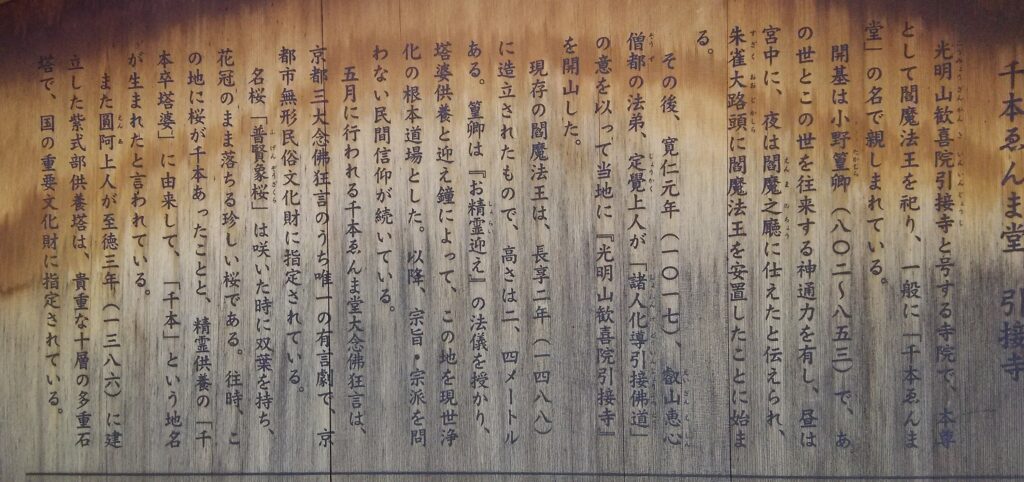 千本ゑんま堂　引接寺
光明山歓喜院引接寺と号する寺院で、本尊
として閻魔法王を祀り、一般に「千本ゑんま
堂」の名で親しまれている。
開基は小野篁卿（八〇二～八五三）で、あ
の世とこの世を往来する神通力を有し、昼は
宮中に、夜は閻魔之廳に仕えたと伝えられ、
朱雀大路頭に閻魔法王を安置したことに始ま
る。
その後、寛仁元年（一〇一七）、叡山恵心
僧都の法弟、定覺上人が「諸人化導引接佛道」
の意を以って当地に『光明山歓喜院引接寺』
を開山した。
現存の閻魔法王は、長享二年（一四八八）
に造立されたもので、高さは二、四メートル
ある。篁卿は『お精霊迎え』の法儀を授かり、
塔婆供養と迎え鐘によって、この地を現世浄
化の根本道場とした。以降、宗旨・宗派を問
わない民間信仰が続いている。
五月に行われる千本ゑんま堂大念佛狂言は、
京都三大念佛狂言のうち唯一の有言劇で、京
都市無形民俗文化財に指定されている。
名桜「普賢象桜」は咲いた時に双葉を持ち、
花冠のまま落ちる珍しい桜である。往時、こ
の地に桜が千本あったことと、精霊供養の「千
本卒塔婆」に由来して、「千本」という地名
が生まれたと言われている。
また圓阿上人が至徳三年（一三八六）に建
立した紫式部供養塔は、貴重な十層の多重石
塔で、国の重要文化財に指定されている。